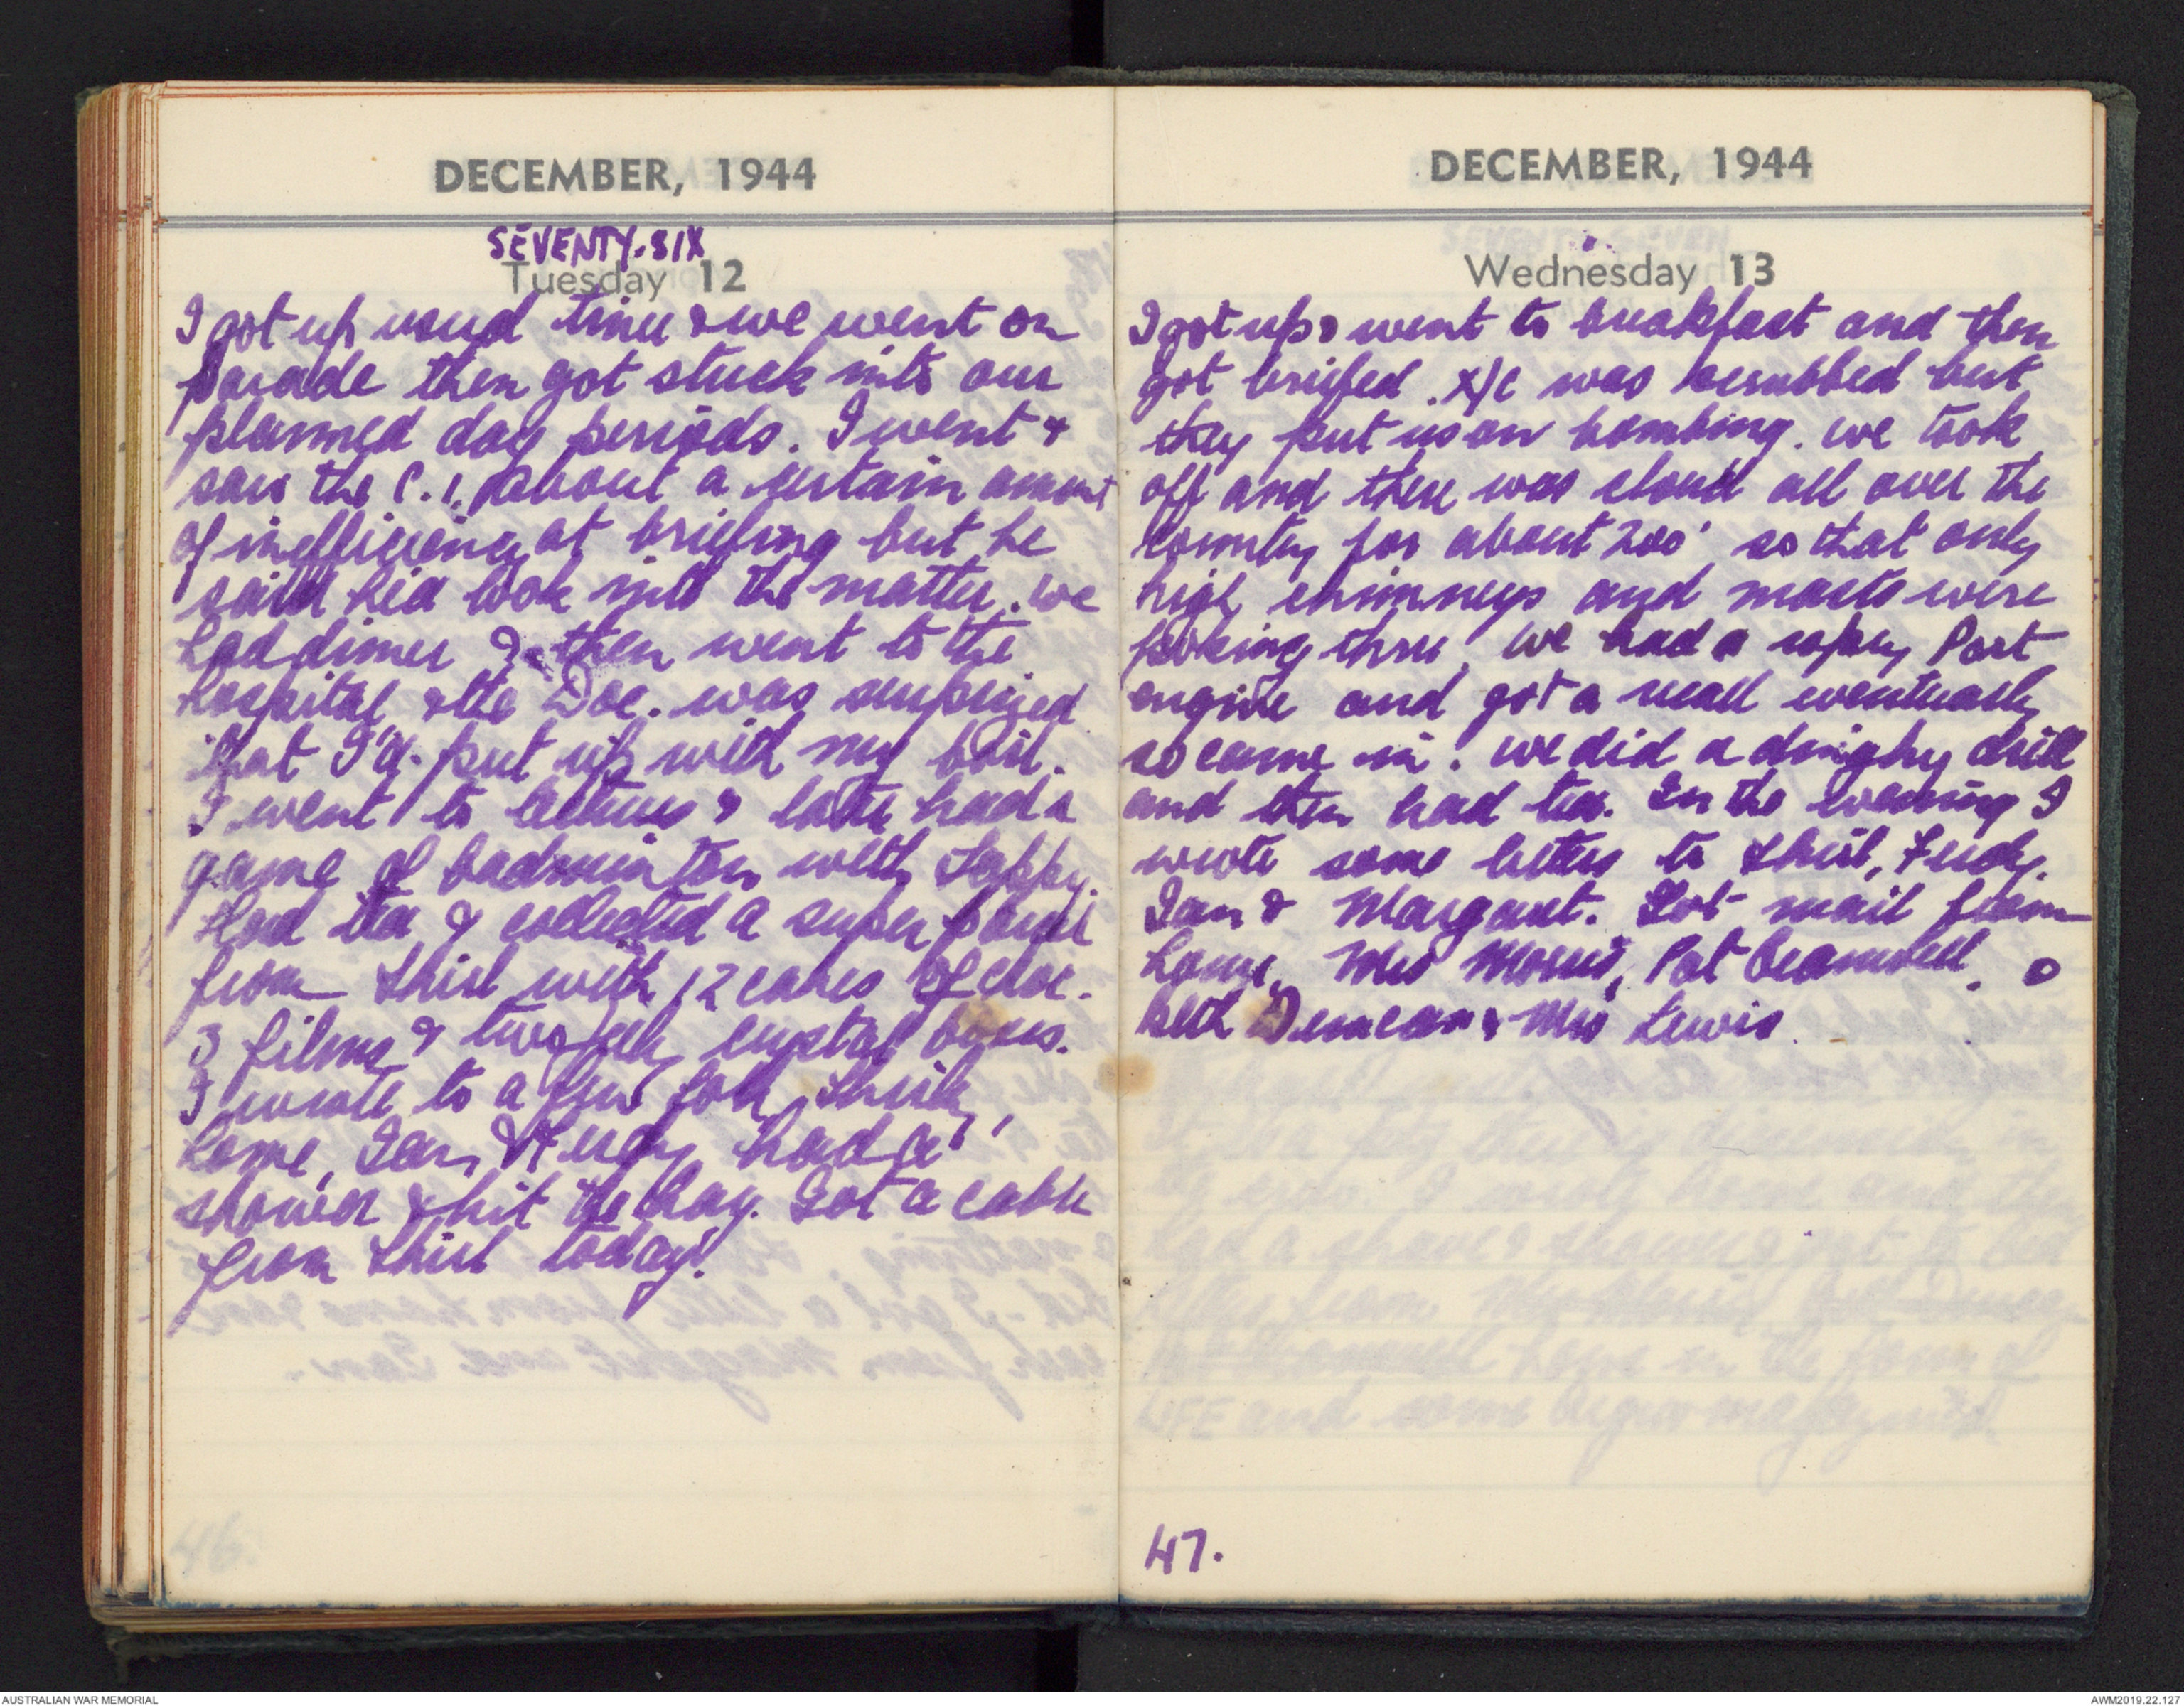 DECEMBER, 1944
SEVENTY-SIX
Tuesday 12
I got up usual time & we went on
parade then got stuck into our
planned day periods. I went &
saw the C.I. about a certain amount
of inefficiency at briefing but he
said he'd look into the matter. We
had dinner & then went to the
hospital & the Doc. was surprized
that I'd put up with my boil.
I went to lectures & later had a
game of badminton with Lappy.
Had tea & collected a super parcel
from Shirl with 12 cakes of choc.
3 films & two jelly crystal boxes.
I wrote to a few folk, Shirl,
home, Ian, & had a
shower & hit the hay. Got a cable
from Shirl today!
DECEMBER, 1944
Wednesday 13
I got up & went to breakfast and then
got briefed. X/C was scrubbed but
they put us on bombing. We took
off and there was cloud all over the
country for about 200' so that only
high chimneys and masts were
poking thru. We had a ropey Port
engine and got a recall eventually
so came in. We did a dinghy drill
and then had tea. In the evening I
wrote some letters to Shirl,
Ian & Margaret. Got mail from
home, Mrs Morris, Pat
Beth Duncan & Mrs Lewis.
47.
AUSTRALIAN WAR MEMORIAL
AWM2019.22.127